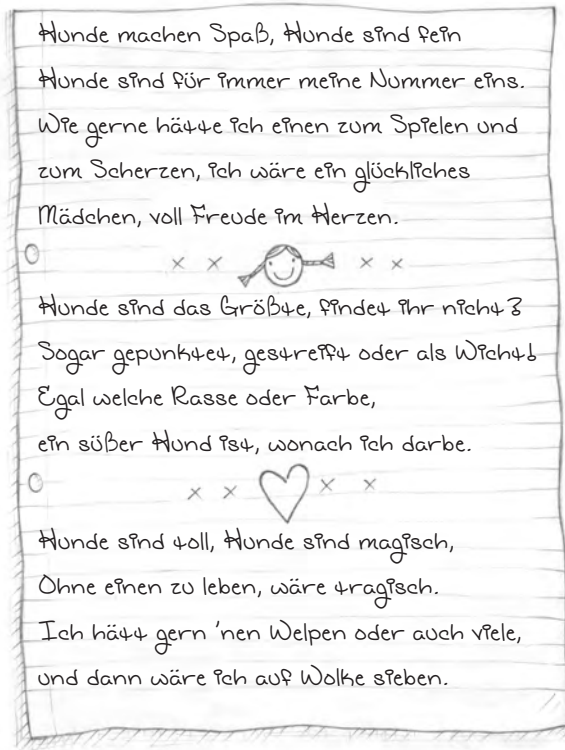 Hunde machen Spaß, Hunde sind fein
Hunde sind für immer meine Nummer eins.
Wie gerne hätte ich einen zum Spielen und
zum Scherzen, ich wäre ein glückliches
Mädchen, voll Freude im Herzen.
Hunde sind das Größte, findet ihr nicht?
Sogar gepunktet, gestreift oder als Wicht!
Egal welche Rasse oder Farbe,
ein süßer Hund ist, wonach ich darbe.
Hunde sind toll, Hunde sind magisch,
Ohne einen zu leben, wäre tragisch.
Ich hätt gern 'nen Welpen oder auch viele,
und dann wäre ich auf Wolke sieben.